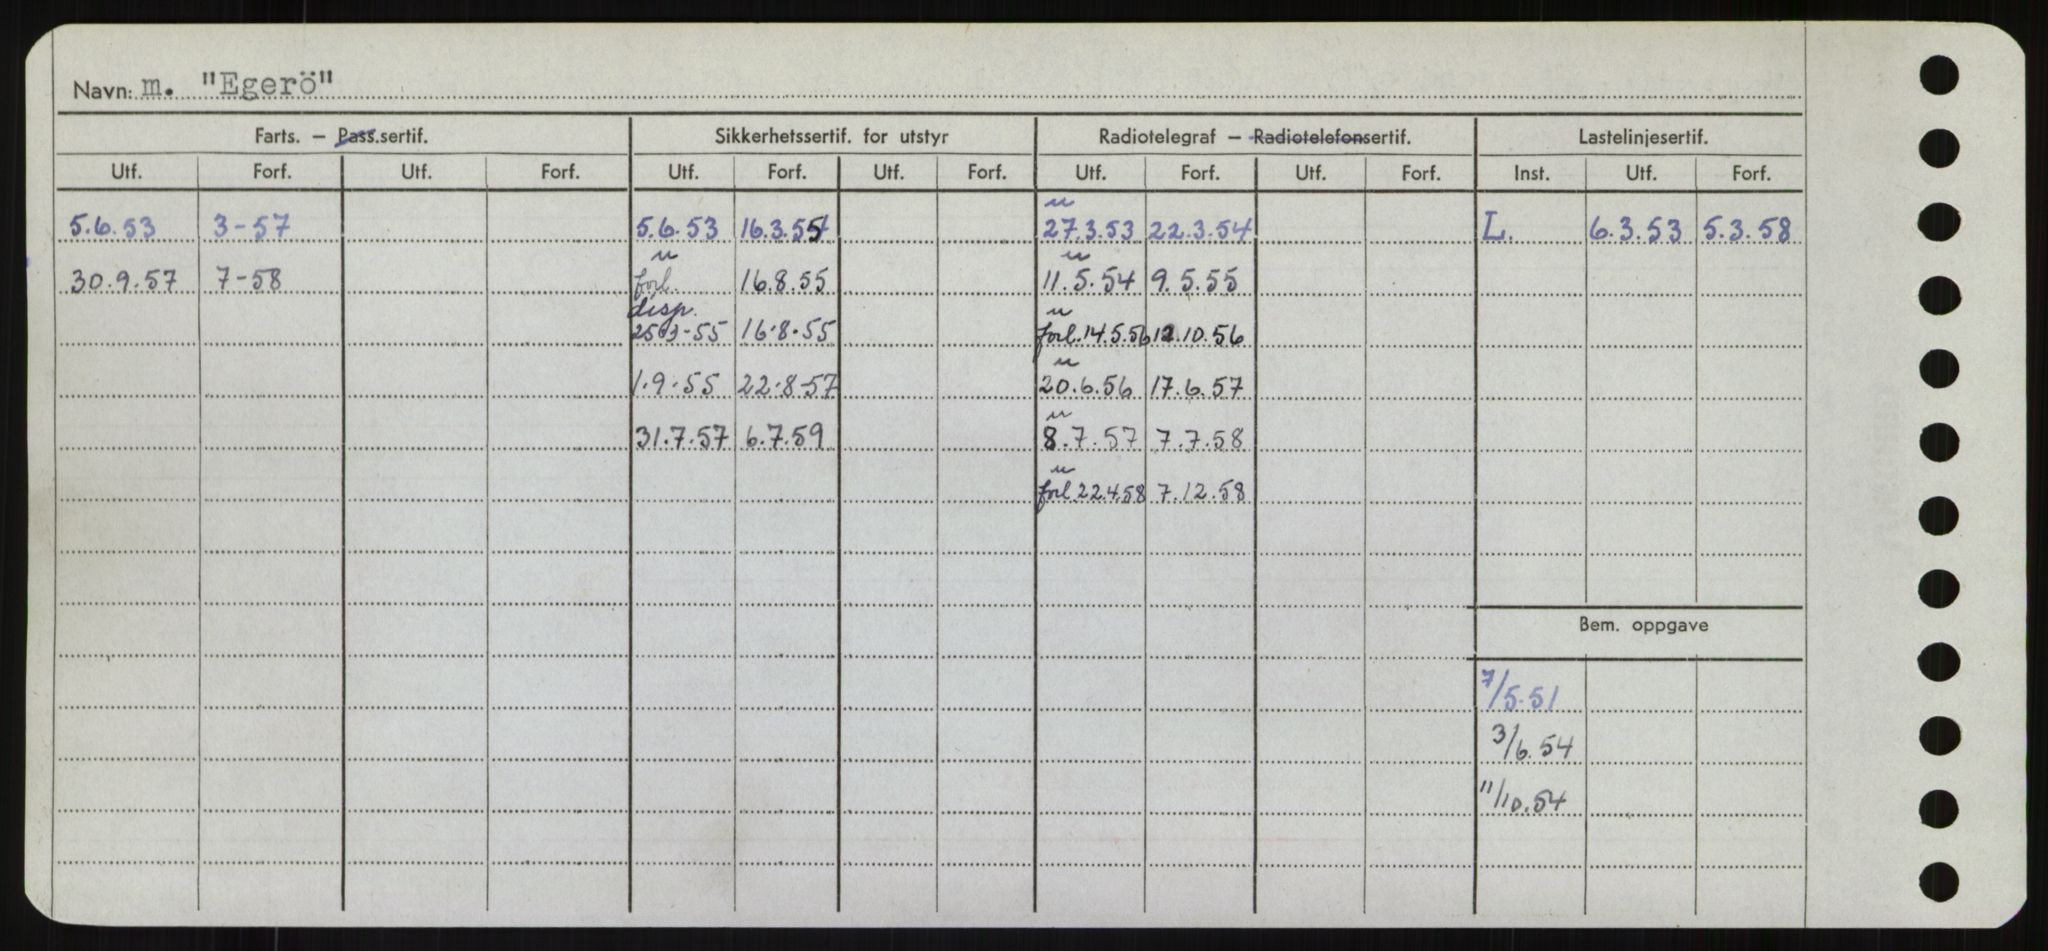 Navn: m. "Egerö"
Farts. – Pass.sertif. Sikkerhetssertif. for utstyr Radiotelegraf – Radiotelefonsertif. Lastelinjesertif.
Utf. Forf. Utf. Forf. Utf. Forf. Utf. Forf. Utf. Forf. Utf. Forf. Inst. Utf. Forf.
5.6.53 3-57 5.6.53 16.3.55 27.3.53 22.3.54 L. 6.3.53 5.3.58
30.9.57 7-58 forl. 16.8.55 11.5.54 9.5.55
disp.
55 16.8.55 forl. 14.5.56 12.10.56
1.9.55 22.8-57 20.6.56 17.6.57
31.7.57 6.7.59 8.7.57 7.7.58
forl 22.4.58 7.12.58
Bem. oppgave
7/5.51
3/6.54
11/10.54